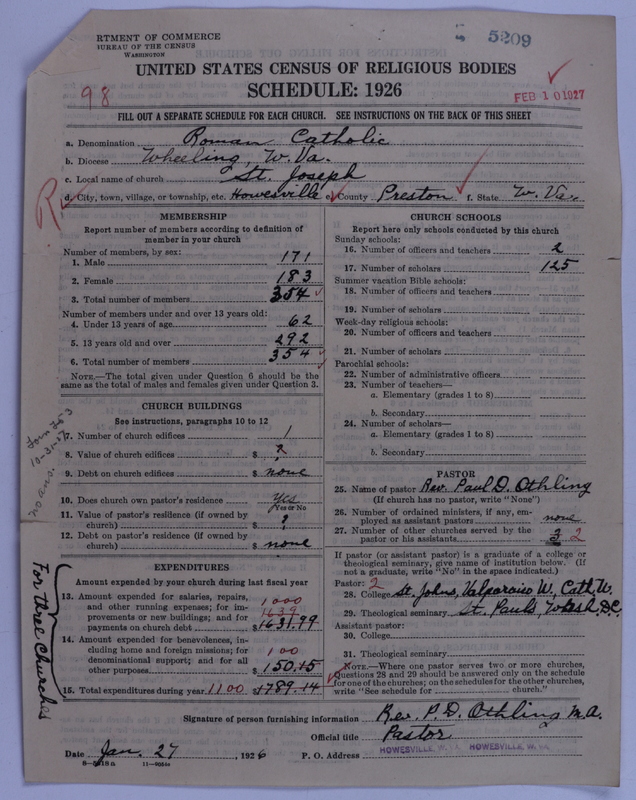 RTMENT OF COMMERCE
BUREAU OF THE CENSUS
WASHINGTON
5209
98
UNITED STATES CENSUS OF RELIGIOUS BODIES
SCHEDULE: 1926
FEB 10 1927
FILL OUT A SEPARATE SCHEDULE FOR EACH CHURCH. SEE INSTRUCTIONS ON THE BACK OF THIS SHEET
a. Denomination Roman Catholic
b. Diocese Wheeling, W. Va.
c. Local name of church St. Joseph
d. City, town, village, or township, etc. Howesville e. County Preston f. State W. Va.
R
MEMBERSHIP
Report number of members according to definition of
member in your church
Number of members, by sex:
1. Male 171
2. Female 183
3. Total number of members 354
Number of members under and over 13 years old:
4. Under 13 years of age 62
5. 13 years old and over 292
6. Total number of members 354
NOTE.—The total given under Question 6 should be the
same as the total of males and females given under Question 3.
CHURCH BUILDINGS
See instructions, paragraphs 10 to 12
7. Number of church edifices 1
8. Value of church edifices $ ?
9. Debt on church edifices $ none
10. Does church own pastor's residence Yes
Yes or No
11. Value of pastor's residence (if owned by
church) $ ?
12. Debt on pastor's residence (if owned by
church) $ none
no ans.
EXPENDITURES
Amount expended by your church during last fiscal year
13. Amount expended for salaries, repairs,
and other running expenses; for im-
provements or new buildings; and for
payments on church debt 1000 1639 $1631.99
14. Amount expended for benevolences, in-
cluding home and foreign missions; for
denominational support; and for all
other purposes 100 $150.15
15. Total expenditures during year 1100 $1789.14
For three Churches
CHURCH SCHOOLS
Report here only schools conducted by this church
Sunday schools:
16. Number of officers and teachers 2
17. Number of scholars 125
Summer vacation Bible schools:
18. Number of officers and teachers
19. Number of scholars
Week-day religious schools:
20. Number of officers and teachers
21. Number of scholars
Parochial schools:
22. Number of administrative officers
23. Number of teachers—
a. Elementary (grades 1 to 8)
b. Secondary
24. Number of scholars—
a. Elementary (grades 1 to 8)
b. Secondary
PASTOR
25. Name of pastor Rev. Paul D. Othling
(If church has no pastor, write "None")
26. Number of ordained ministers, if any, em-
ployed as assistant pastors none
27. Number of other churches served by the
pastor or his assistants 3 2
If pastor (or assistant pastor) is a graduate of a college or
theological seminary, give name of institution below. (If
not a graduate, write "No" in the space indicated.)
Pastor: 2
28. College St. Johns, Valparaiso U., Cath. U.
29. Theological seminary St. Pauls, Wash. D.C.
Assistant pastor:
30. College
31. Theological seminary
NOTE.—Where one pastor serves two or more churches,
Questions 28 and 29 should be answered only on the schedule
for one of the churches; on the schedules for the other churches,
write "See schedule for church."
Signature of person furnishing information Rev. P. D. Othling M.A.
Official title Pastor
Date Jan. 27, 1926 P. O. Address HOWESVILLE, W. VA. HOWESVILLE, W. VA.